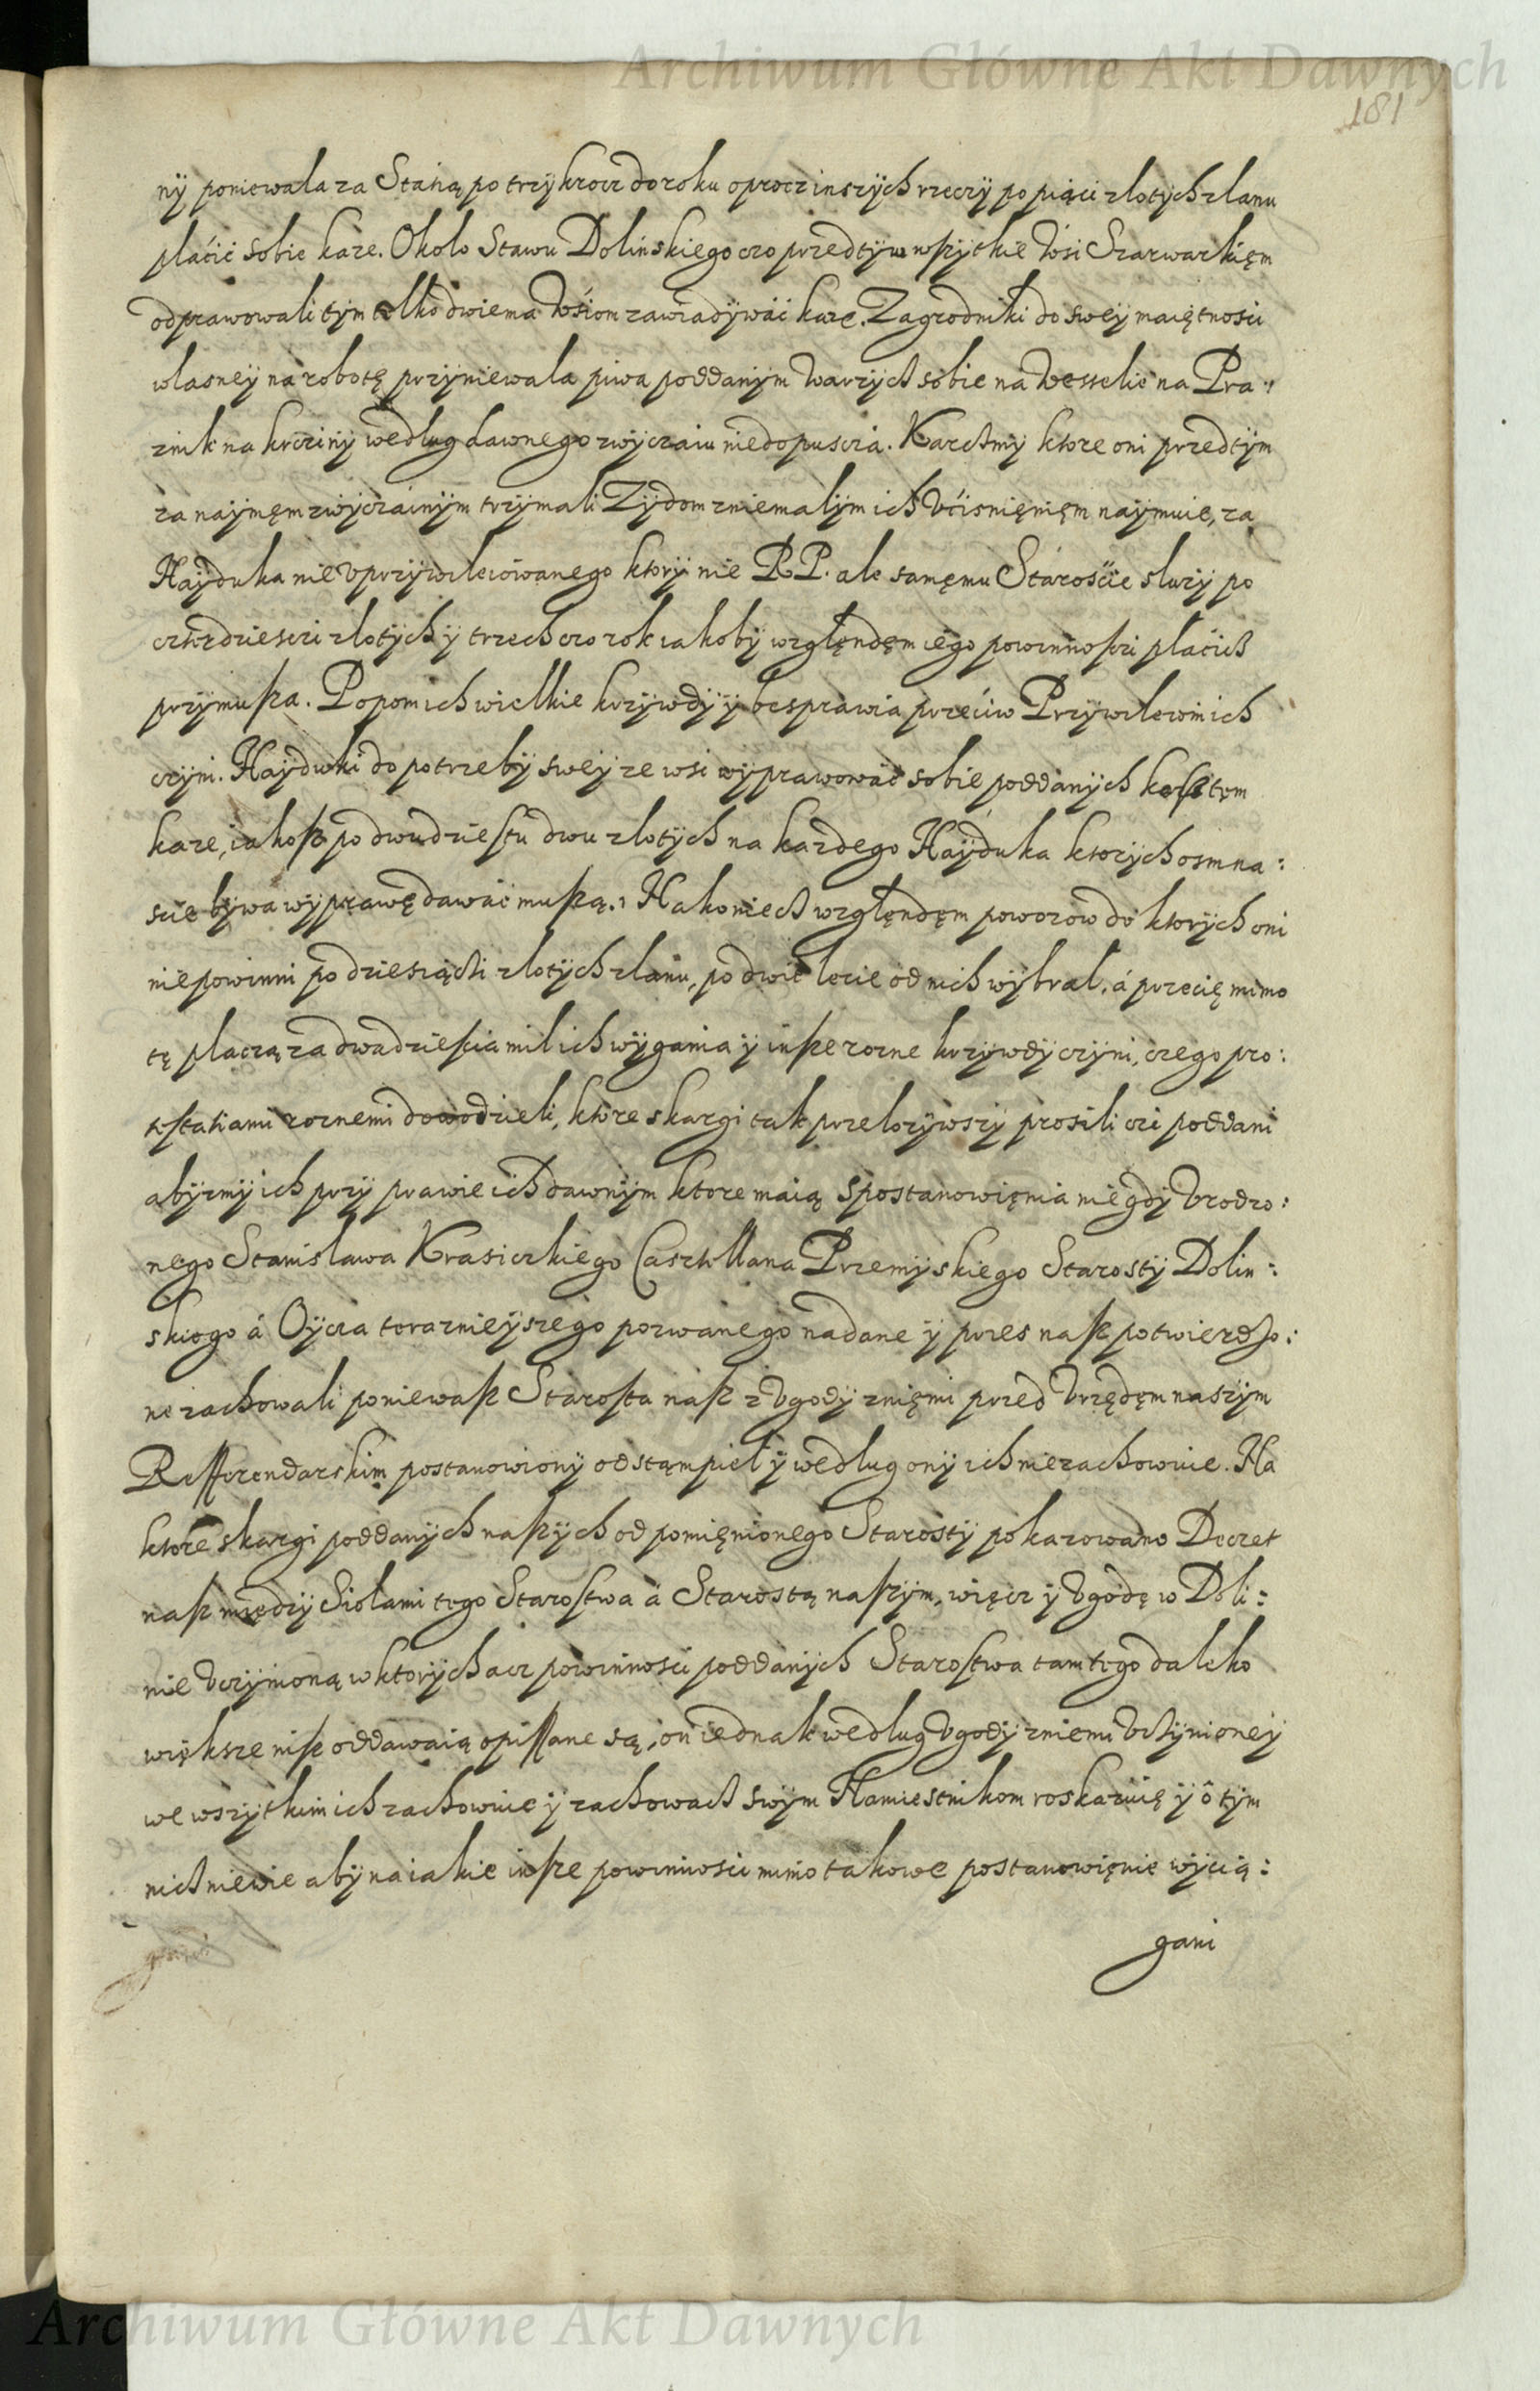 Archiwum Główne Akt Dawnych
181
ny poniewala za Statią po trzykrocz do roku oprocz inszych rzeczy po piąci złotych z łanu
płacić sobie kaze. Około Stawu Dolińskiego czo przedtym wszytkie Wsi Szarwarkięm
odprawowali tym tolko dwiema Wsiom zawiadywać kaze. Zagrodniki do swey maiętnosci
własney na robotę przyniewala piwa poddanym Warzych sobie na Wesselie na Pra:
znik na krzciny według dawnego zwyczaiu niedopuscza. Karchmy ktore oni przedtym
za naymęm zwyczainym trzymali Zydom zniemałym ich Vcisnięnięm naymuie, za
Hayduka nie Vprzywileiowanego ktory nie RP. ale samęmu Staroscie słuzy po
czterdziesczi złotych y trzech czo rok iakoby względęm iego powinnosczi płacich
przymusza. Popom ich wielkie krzywdy y besprawia przeciw Przywileiom ich
czyni. Hayduki do potrzeby swey ze wsi wyprawować sobie poddanych kosztem
kaze, iakosz po dwudziestu dwu złotych na kazdego Hayduka ktorych osmna:
scie bywa wyprawę dawać muszą. Nakoniech względęm powozow do ktorych oni
niepowinni po dziesiąchi złotych z łanu, po dwie lecie od nich wybrał, á przecię mimo
tę płaczą za dwadziescia mil ich wygania y insze rozne krzywdy czyni, czego pro:
testatiami roznemi dowodzieli, ktore skargi tak przełozywszy prosili czi poddani
abyzmy ich przy prawie ich dawnym ktore maią s postanowięnia niegdy Vrodzo:
nego Stanisława Krasiczkiego Casztellana Przemyskiego Starosty Dolin:
skiego á Oycza teraznieyszego pozwanego nadane y przes nasz potwierdzo:
ne zachowali poniewasz Starosta nasz z Vgody znięmi przed Vrzędęm naszym
Refferendarskim postanowiony odstąmpieł y według ony ich niezachowuie. Na
ktore skargi poddanych naszych od pomięnionego Starosty pokazowano Decret
nasz między Siołami tego Starostwa á Starostą naszym, więcz y Vgodę w Doli:
nie Vczynioną w ktorych acz powinnosci poddanych Starostwa tamtego daleko
większe nisz oddawaią opissane są, on iednak według Vgody zniemi Vchynioney
we wszytkim ich zachowuie y zachowach swym Namiestnikom roskazuię y o tym
nich niewie aby na iakie insze powinnosci mimo takowe postanowięnie wycią:
gani